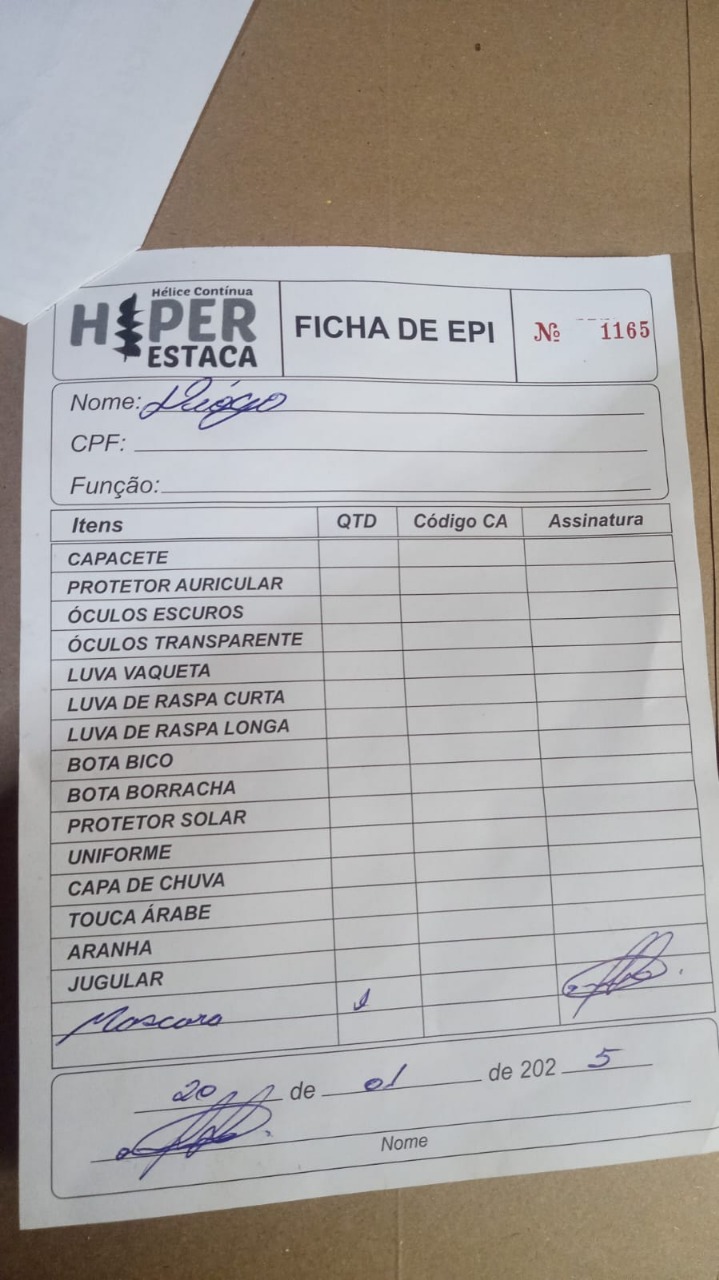 Hélice Contínua
HIPER
ESTACA
FICHA DE EPI
Nº 1165
Nome: Diógo
CPF:
Função:
Itens QTD Código CA Assinatura
CAPACETE
PROTETOR AURICULAR
ÓCULOS ESCUROS
ÓCULOS TRANSPARENTE
LUVA VAQUETA
LUVA DE RASPA CURTA
LUVA DE RASPA LONGA
BOTA BICO
BOTA BORRACHA
PROTETOR SOLAR
UNIFORME
CAPA DE CHUVA
TOUCA ÁRABE
ARANHA
JUGULAR
Mascara 1
20 de 01 de 2025
Nome